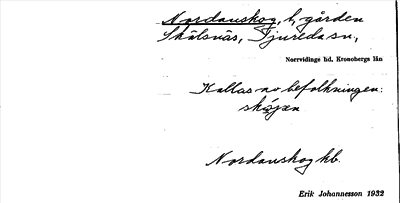 Nordanskog, l, gården
Skälsnäs, Tjureda sn,
Norrvidinge hd, Kronobergs län
Kallas av befolkningen:
skojen
Nordanskog kb.
Erik Johannesson 1932